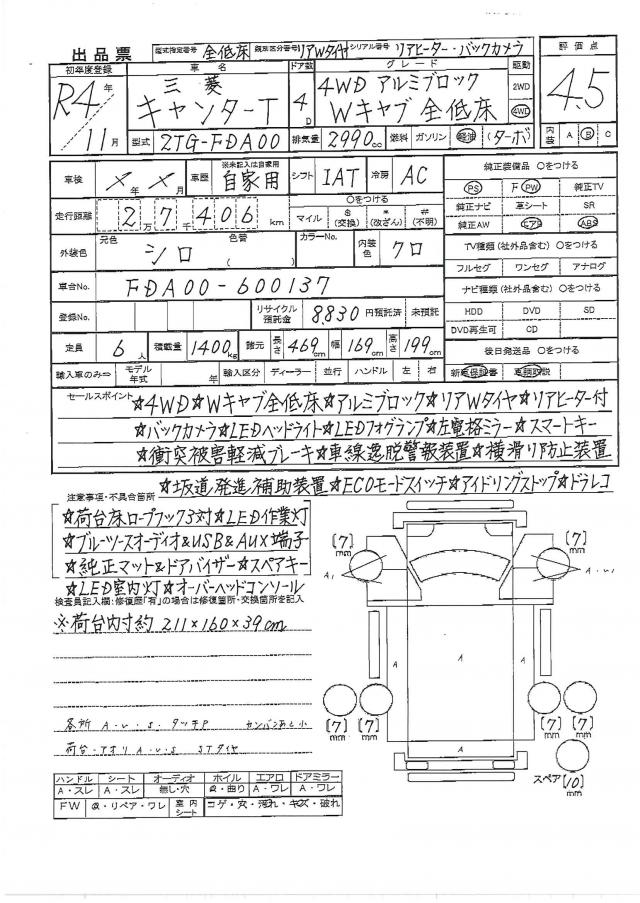 出品票 型式指定番号 全低床 類別区分番号 リアWタイヤ シリアル番号 リアヒーター・バックカメラ
初年度登録 車名 ドア数 グレード 駆動 評価点
R4年 11月 三菱 キャンターT 4D 4WD アルミブロック Wキャブ 全低床 2WD 4WD 4.5
型式 2TG-FDA00 排気量 2990cc 燃料 ガソリン 軽油 (ターボ) 内装 A B C
車検 メ年メ月 車歴 ※未記入は自家用 自家用 シフト IAT 冷房 AC
純正装備品 ○をつける
PS PW 純正TV
純正ナビ 革シート SR
純正AW エアB ABS
走行距離 2万7千406km ○をつける マイル $(交換) *(改ざん) #(不明)
外装色 元色 シロ 色替 ( ) カラーNo. 内装色 クロ
TV種類(社外品含む) ○をつける
フルセグ ワンセグ アナログ
車台No. FDA00-600137
ナビ種類(社外品含む) ○をつける
HDD DVD SD
DVD再生可 CD
登録No. リサイクル預託金 8,830 円預託済 未預託
定員 6人 積載量 1400kg 諸元 長さ 469cm 幅 169cm 高さ 199cm
後日発送品 ○をつける
新車保証書 車輌取説
輸入車のみ⇒ モデル年式 年 輸入区分 ディーラー 並行 ハンドル 左 右
セールスポイント ☆4WD☆Wキャブ全低床☆アルミブロック☆リアWタイヤ☆リアヒーター付
☆バックカメラ☆LEDヘッドライト☆LEDフォグランプ☆左電格ミラー☆スマートキー
☆衝突被害軽減ブレーキ☆車線逸脱警報装置☆横滑り防止装置
☆坂道発進補助装置☆ECOモードスイッチ☆アイドリングストップ☆ドラレコ
注意事項・不具合箇所
☆荷台床ロープフック3対☆LED作業灯
☆ブルーツースオーディオ&USB&AUX端子
☆純正マット&ドアバイザー☆スペアキー
☆LED室内灯☆オーバーヘッドコンソール
検査員記入欄:修復歴「有」の場合は修復箇所・交換箇所を記入
※荷台内寸約 211×160×39cm
各所 A・U・S・タッチP カンバンあと小
荷台・アオリ A・U・S STタイヤ
[7]mm [7]mm
A1 A・U・1
A A A
[7]mm [7]mm [7]mm [7]mm
A
スペア[10]mm
ハンドル シート オーディオ ホイル エアロ ドアミラー
A・スレ A・スレ 無し・穴 G・曲り A・ワレ A・ワレ
FW G・リペア・ワレ 室内シート コゲ・穴・汚れ・キズ・破れ